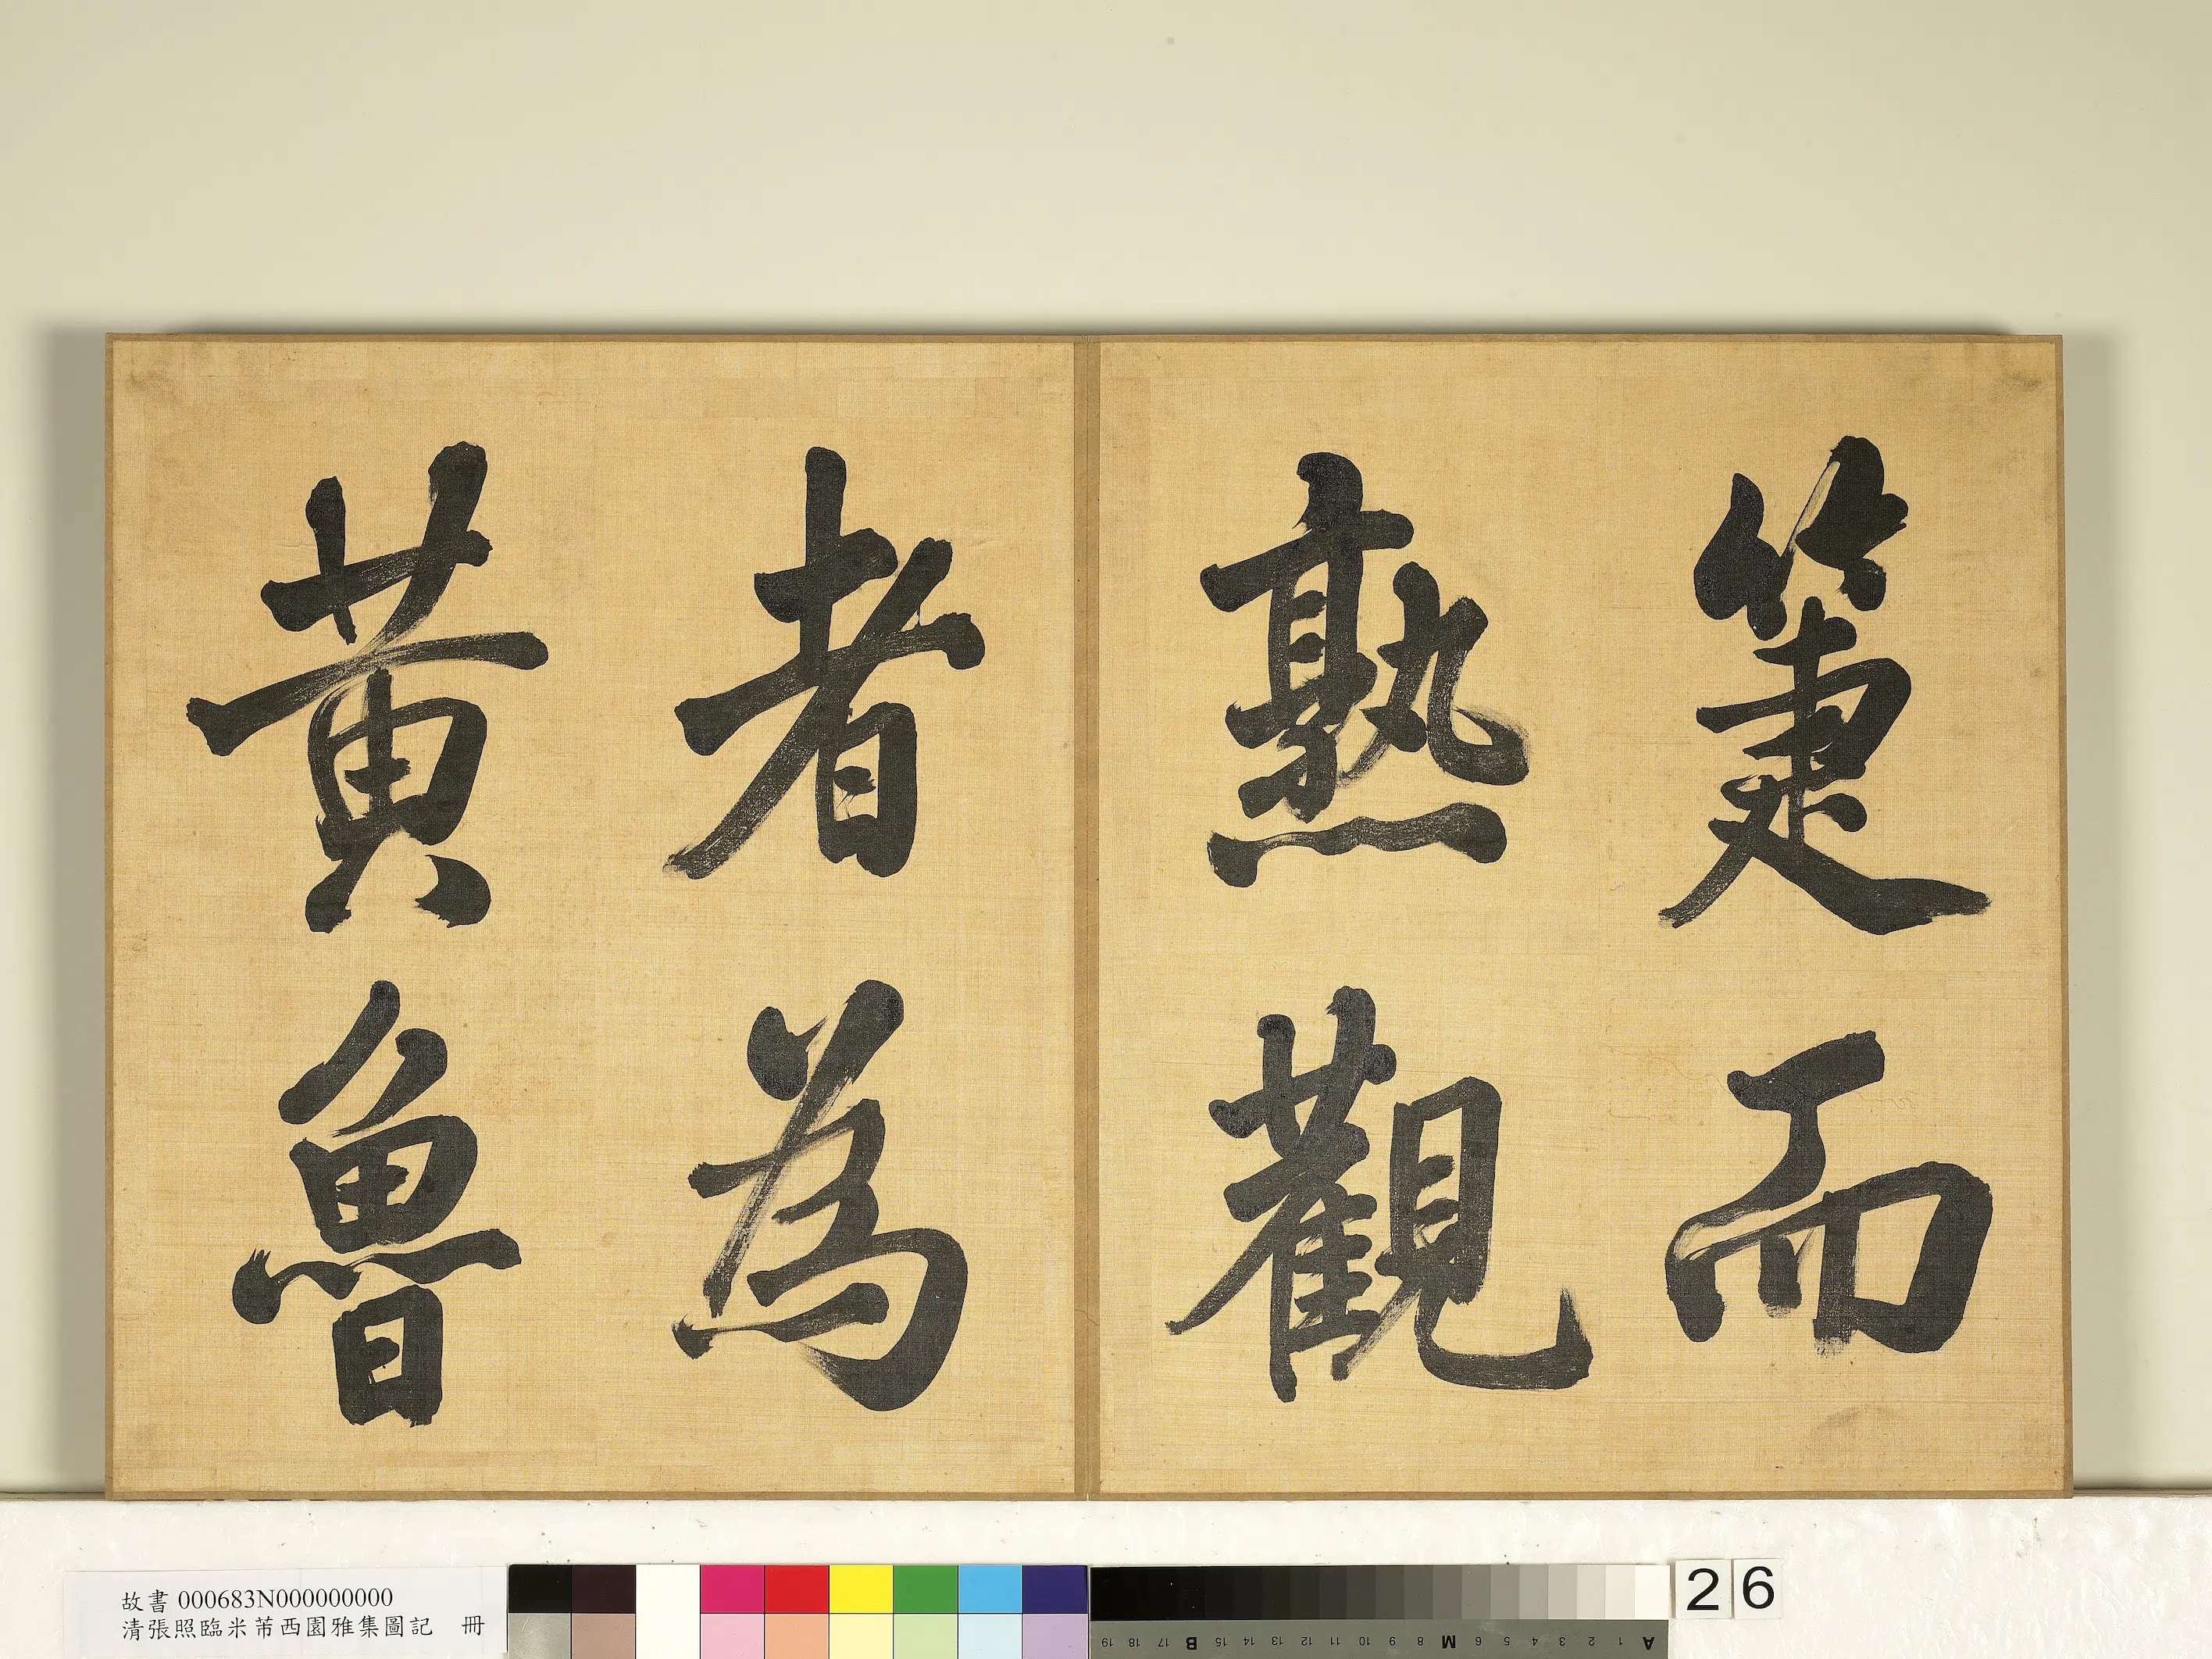 箑而
熟觀
者為
黃魯
故書 000683N000000000
清張照臨米芾西園雅集圖記 冊
A 1 2 3 4 5 6 M 8 9 10 11 12 13 14 15 B 17 18 19
26